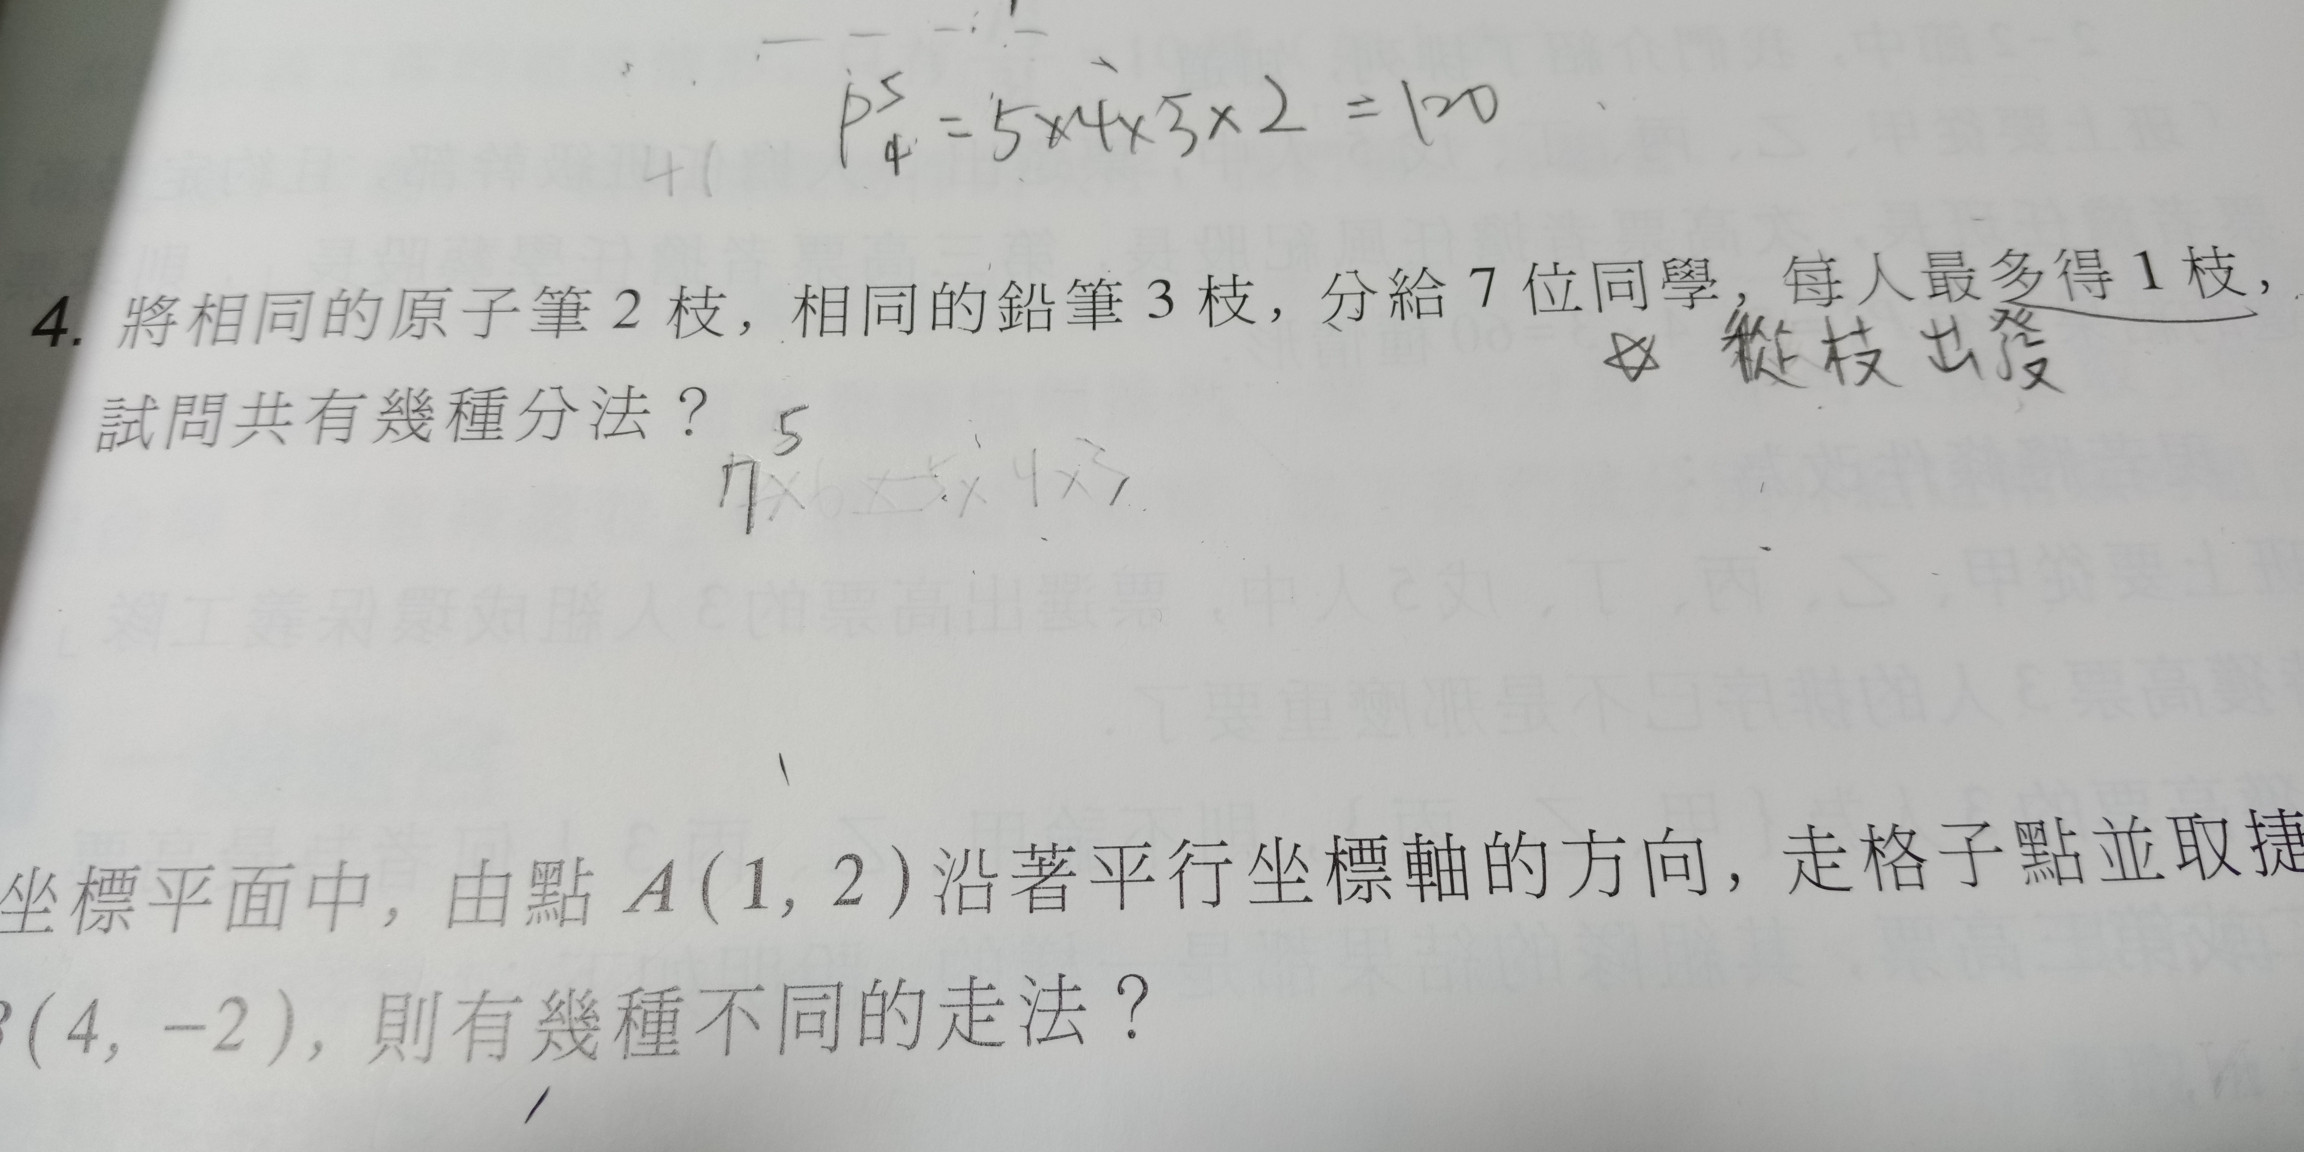 P⁵₄ = 5×4×3×2 = 120
41
4. 將相同的原子筆 2 枝，相同的鉛筆 3 枝，分給 7 位同學，每人最多得 1 枝，
☆ 從枝出發
試問共有幾種分法？
7⁵
7×6×5×4×3
坐標平面中，由點 A(1, 2)沿著平行坐標軸的方向，走格子點並取捷
(4, −2)，則有幾種不同的走法？